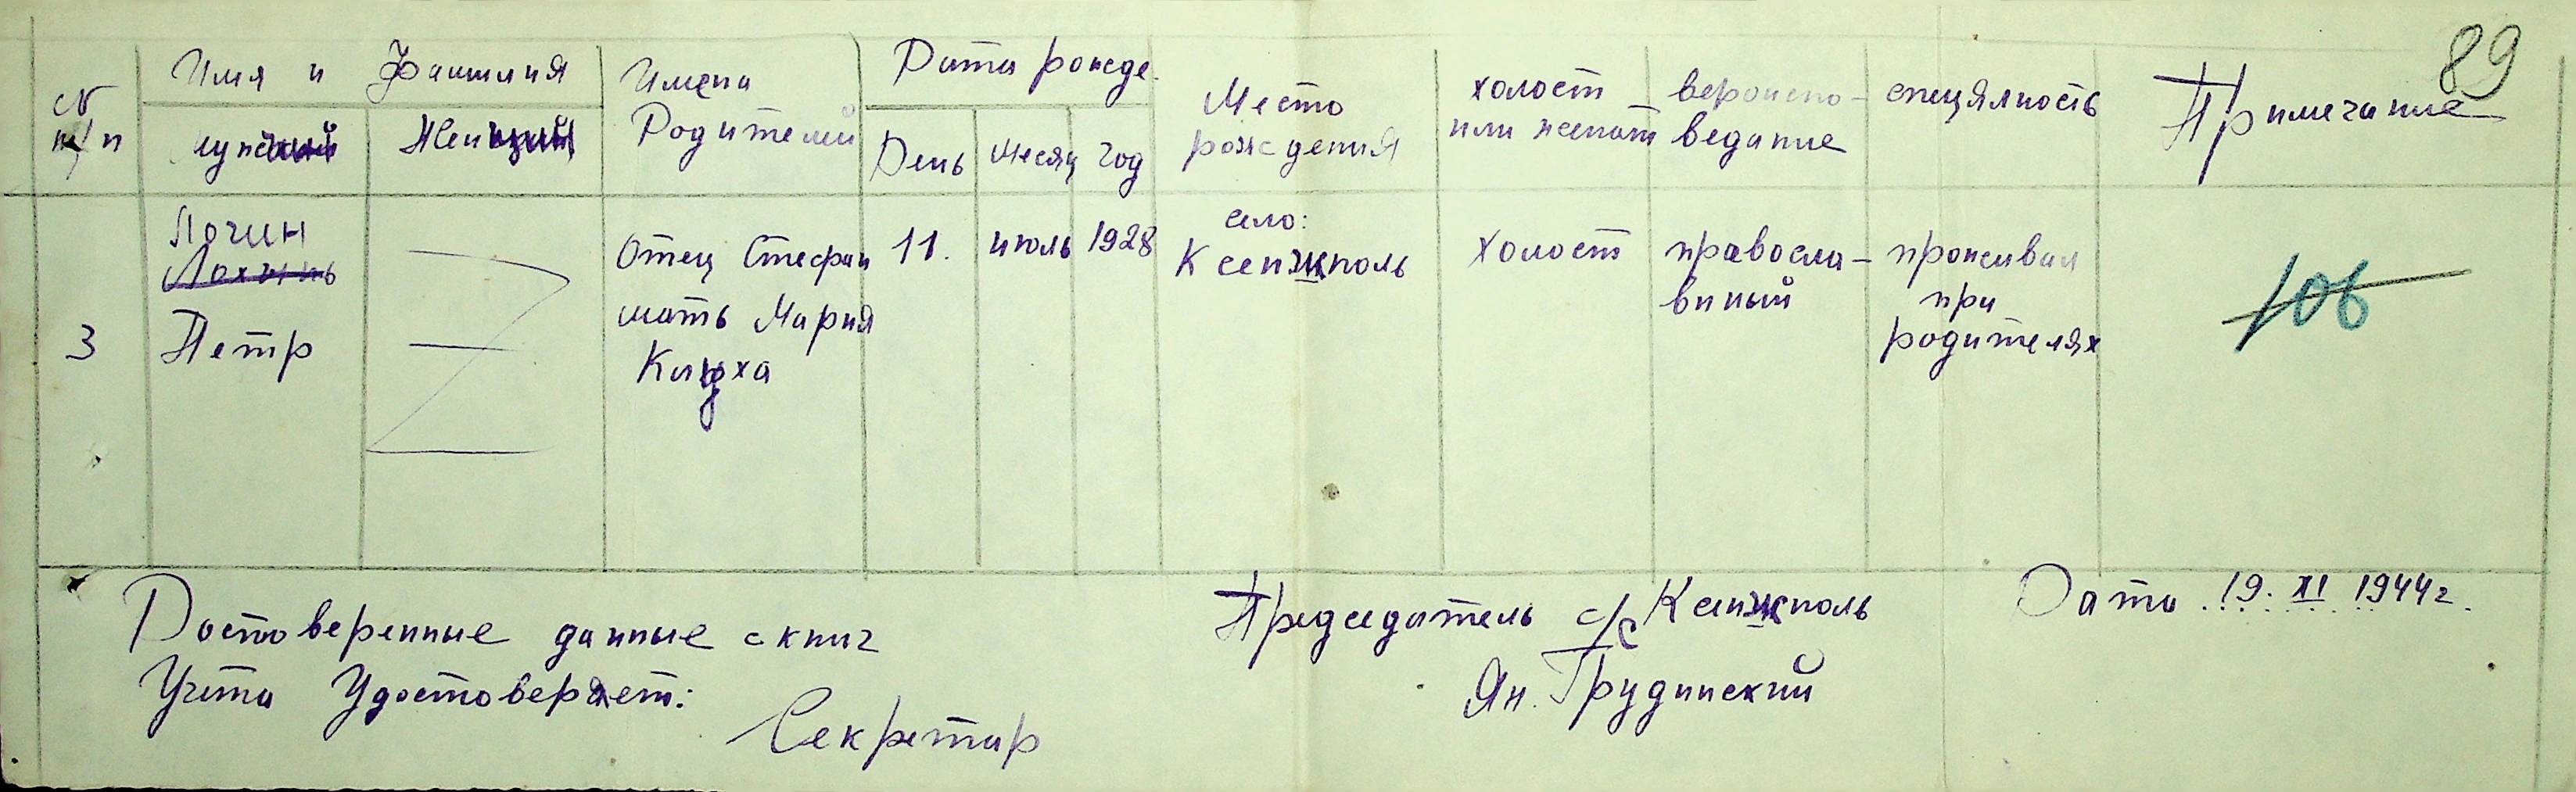 89
№ п/п
Имя и Фамилия
мужский
Женский
Имена Родителей
Дата рожде.
День
Месяц
Год
Место рождения
холост или женат
вероиспо-ведание
специялность
Примечание
3
Лочин
Петр
Отец Стефан
мать Мария
11.
июль
1928
село:
Ксенжполь
холост
правосла-
вный
проживал
при
родителях
106
Достоверенные данные с книг
Учета Удостоверяет:
Секретар
Председатель с/с Ксенжполь
Ян. Грудинский
Дата 19. XI 1944г.